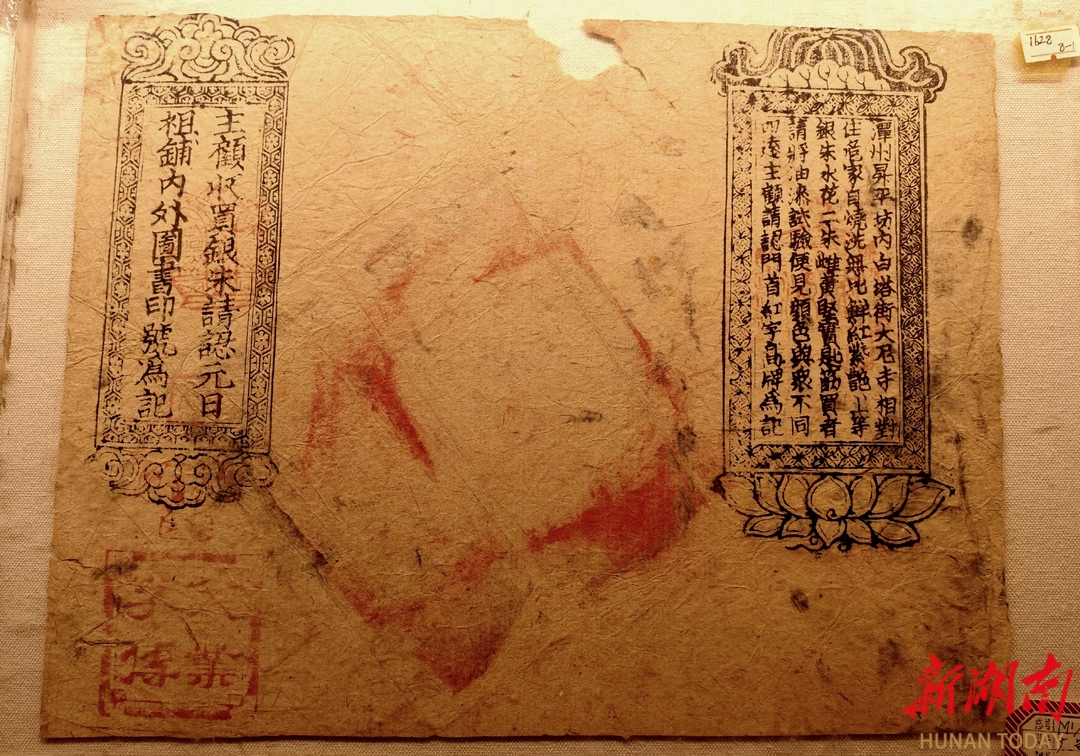 潭州昇平坊内白塔街大尼寺相對
住危家自燒洗無比鮮紅紫艷上等
銀朱水花二朱雌黄堅實匙筯買者
請將油漆試驗便見顔色與衆不同
四遠主顧請認門首紅字高牌為記
主顧收買銀朱請認元日
祖鋪内外圖書印號為記
1628
8-1
新湖南
HUNAN TODAY